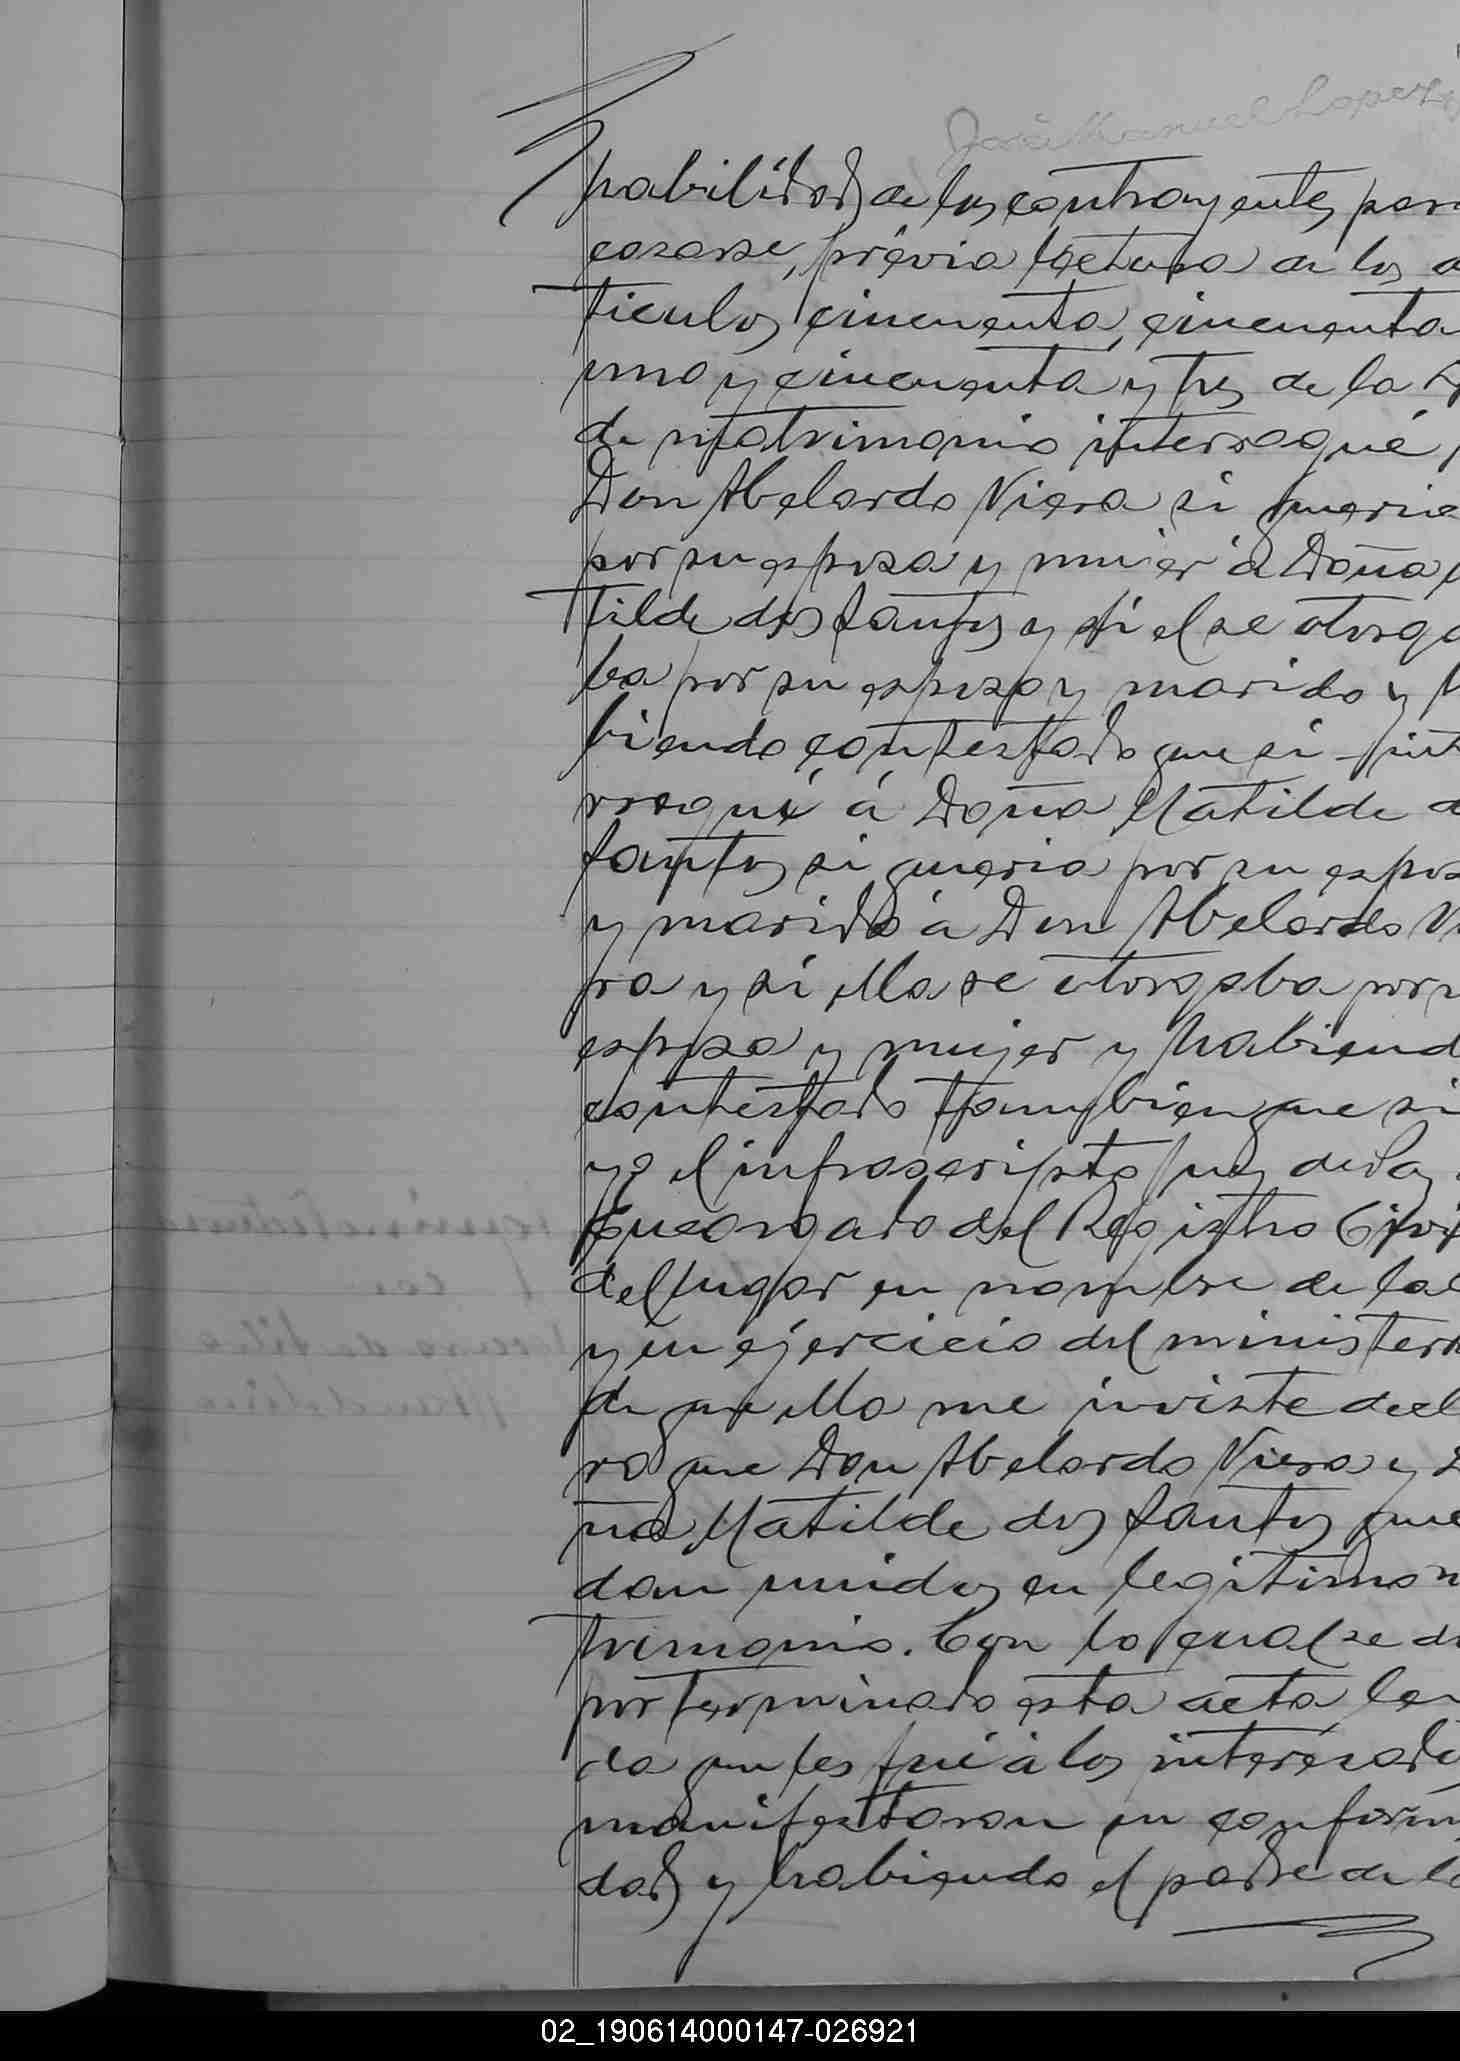 José Manuel Lopez
habilidad de los contrayentes par
casarse, prévia lectura de los a
ticulos cincuenta, cincuenta
uno y cincuenta y tres de la L
de matrimonio interrogué
Don Abelardo Viera si queria
por su esposa y mujer á Doña
tilde dos Santos y si el se otorga
ba por su esposo y marido y h
biendo contestado que si int
rrogué á Doña Matilde d
Santos si queria por su espos
y marido á Don Abelardo Vi
ra y si ella se otorgaba por s
esposa y mujer y habiend
contestado tambien que si
yo el infrascripto Juez de Paz
Encargado del Registro Civi
del lugar en nombre de la
y en ejercicio del minister
de que ella me inviste decl
ro que Don Abelardo Viera y D
ña Matilde dos Santos que
dan unidos en legitimo m
trimonio. Con lo cual se di
por terminada esta acta le
da que les fué á los interesado
manifestaron su conformi
dad y habiendo el padre de l
02_190614000147-026921